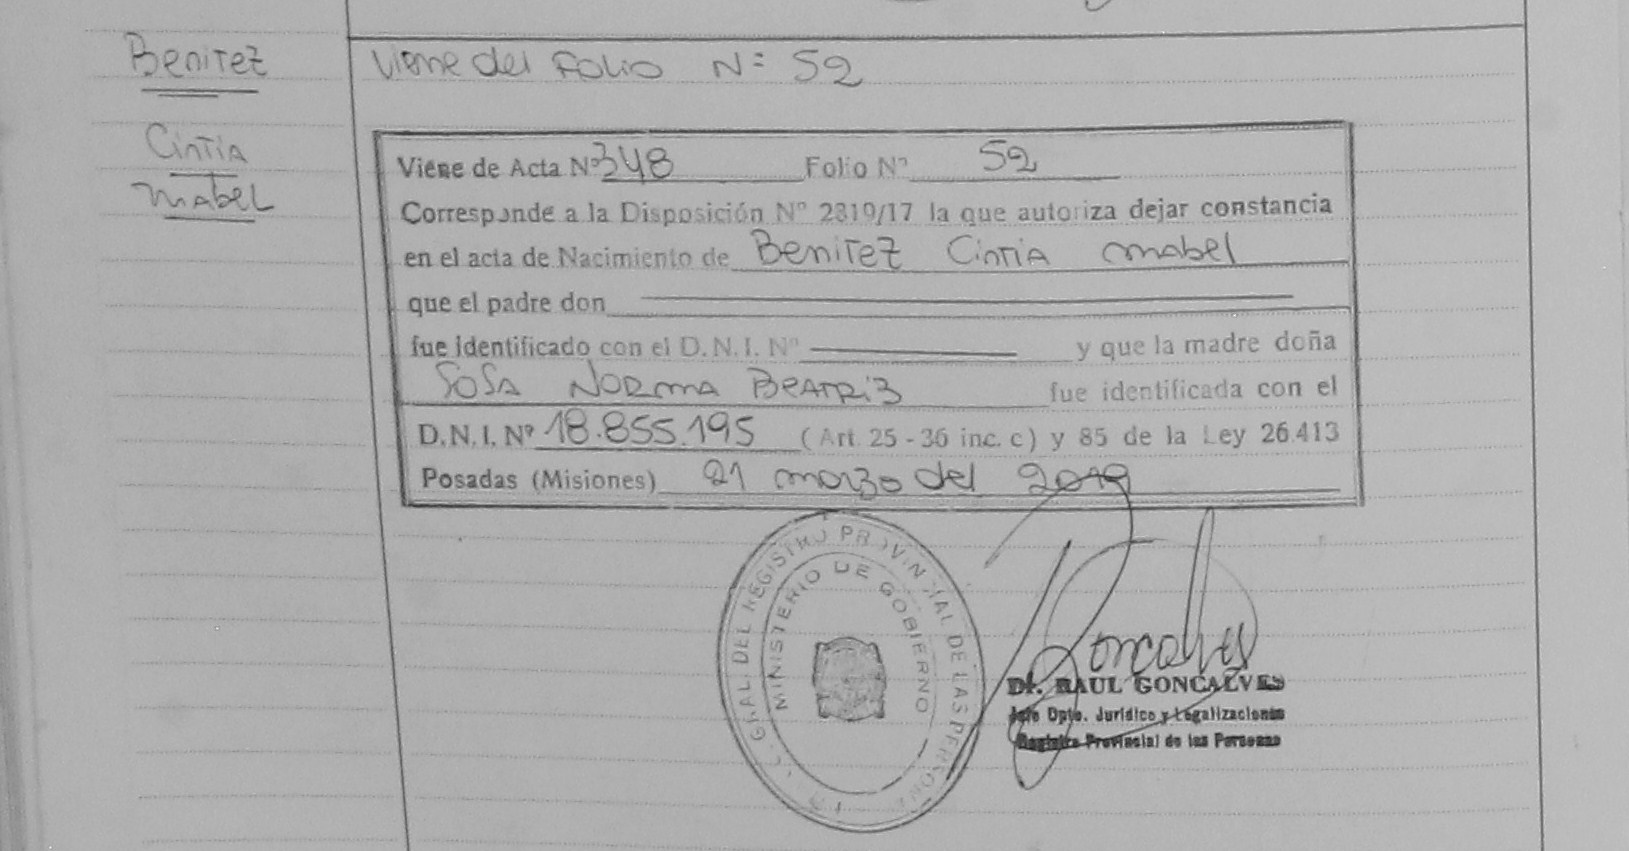 Benitez
Cintia
Mabel
Viene del Folio N: 52
Viene de Acta Nº 348 Folio Nº 52
Corresponde a la Disposición Nº 2819/17 la que autoriza dejar constancia
en el acta de Nacimiento de Benitez Cintia Mabel
que el padre don
fue identificado con el D.N.I. Nº y que la madre doña
Sosa Norma Beatriz fue identificada con el
D.N.I. Nº 18.855.195 (Art. 25 - 36 inc. c) y 85 de la Ley 26.413
Posadas (Misiones) 21 marzo del 2019
GRAL. DEL REGISTRO PROVINCIAL DE LAS PERSONAS
MINISTERIO DE GOBIERNO
Goncalves
Dr. RAUL GONCALVES
Jefe Dpto. Jurídico y Legalizaciones
Registro Provincial de las Personas